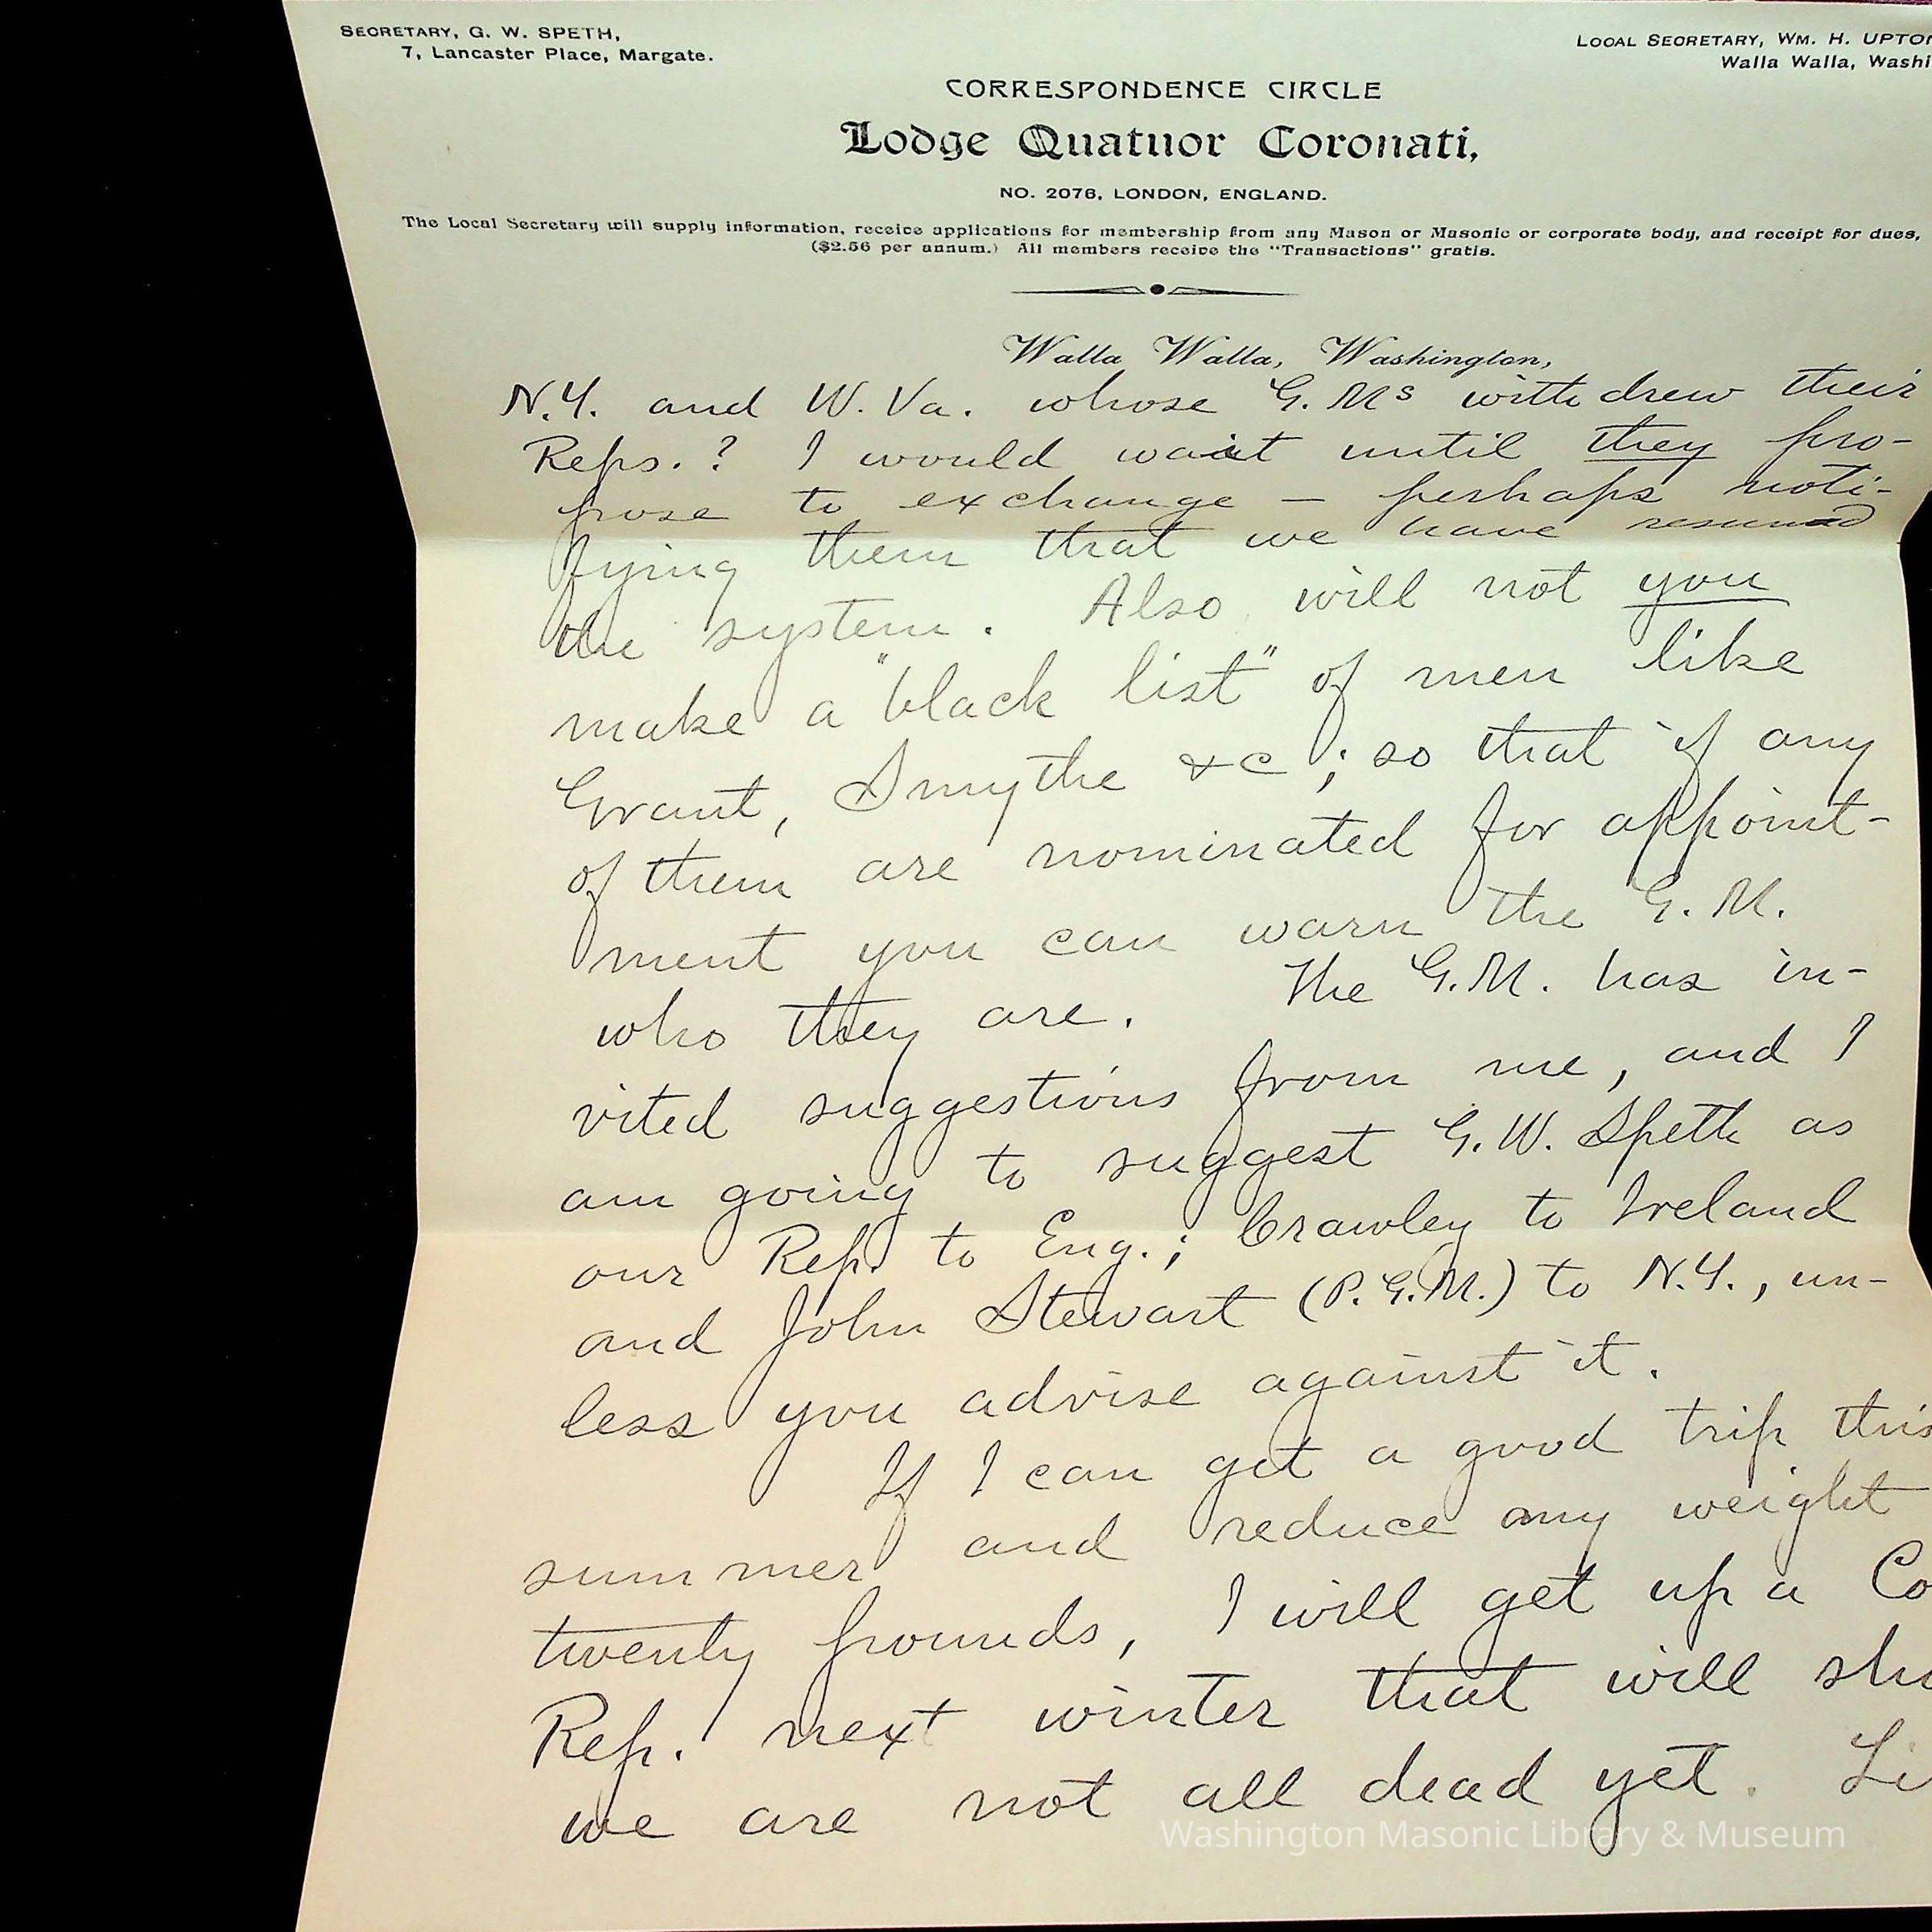 SECRETARY, G. W. SPETH,
7, Lancaster Place, Margate.
LOCAL SECRETARY, WM. H. UPTON
Walla Walla, Washi
CORRESPONDENCE CIRCLE
Lodge Quatuor Coronati,
NO. 2076, LONDON, ENGLAND.
The Local Secretary will supply information, receive applications for membership from any Mason or Masonic or corporate body, and receipt for dues,
($2.56 per annum.) All members receive the "Transactions" gratis.
Walla Walla, Washington,
N.Y. and W. Va. whose G. Ms withdrew their
Reps.? I would wait until they pro-
pose to exchange — perhaps noti-
fying them that we have resumed
the system. Also will not you
make a "black list" of men like
Grant, Smythe &c; so that if any
of them are nominated for appoint-
ment you can warn the G. M.
who they are. The G.M. has in-
vited suggestions from me, and I
am going to suggest G. W. Speth as
our Rep. to Eng.; Crawley to Ireland
and John Stewart (P.G.M.) to N.Y., un-
less you advise against it.
If I can get a good trip this
summer and reduce any weight
twenty pounds, I will get up a Co
Rep. next winter that will sho
we are not all dead yet. Li
Washington Masonic Library & Museum